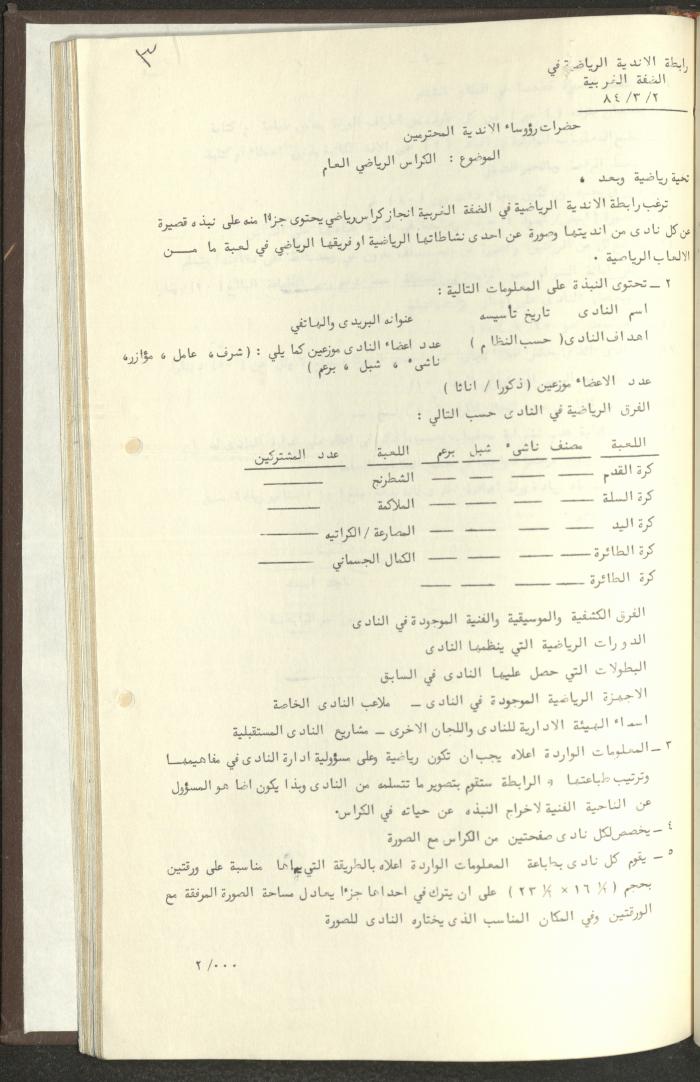 ٣
رابطة الاندية الرياضية في
الضفة الغربية
٨٤/٣/٢
حضرات رؤوساء الاندية المحترمين
الموضوع : الكراس الرياضي العام
تحية رياضية وبعد ،
ترغب رابطة الاندية الرياضية في الضفة الغربية انجاز كراس رياضي يحتوى جزءا منه على نبذه قصيرة
عن كل نادى من انديتها وصورة عن احدى نشاطاتها الرياضية او فريقها الرياضي في لعبة ما مــــن
الالعاب الرياضية .
٢ – تحتوى النبذة على المعلومات التالية :
اسم النادى تاريخ تأسيسه عنوانه البريدى والهاتفي
اهداف النادى ( حسب النظام ) عدد اعضاء النادى موزعين كما يلي : ( شرف ، عامل ، مؤازر ،
ناشىء ، شبل ، برعم )
عدد الاعضاء موزعين ( ذكورا / اناثا )
الفرق الرياضية في النادى حسب التالي :
اللعبة مصنف ناشىء شبل برعم اللعبة عدد المشتركين
كرة القدم —— —— —— —— الشطرنج ———
كرة السلة —— —— —— —— الملاكمة ———
كرة اليد —— —— —— —— المصارعة / الكراتيه ———
كرة الطائرة —— —— —— —— الكمال الجسماني ———
كرة الطائرة —— —— —— ——
الفرق الكشفية والموسيقية والفنية الموجودة في النادى
الدورات الرياضية التي ينظمها النادى
البطولات التي حصل عليها النادى في السابق
الاجهزة الرياضية الموجودة في النادى – ملاعب النادى الخاصة
اسماء الهيئة الادارية للنادى واللجان الاخرى – مشاريع النادى المستقبلية
٣ – المعلومات الواردة اعلاه يجب ان تكون رياضية وعلى مسؤولية ادارة النادى في مفاهيمهــا
وترتيب طباعتها و الرابطة ستقوم بتصوير ما تتسلمه من النادى وبذا يكون اضا هو المسؤول
عن الناحية الفنية لاخراج النبذه عن حياته في الكراس .
٤ – يخصص لكل نادى صفحتين من الكراس مع الصورة
٥ – يقوم كل نادى بطباعة المعلومات الواردة اعلاه بالطريقة التي يراها مناسبة على ورقتين
بحجم ( ½ ١٦ × ½ ٢٣ ) على ان يترك في احداها جزءا يعادل مساحة الصورة المرفقة مع
الورقتين وفي المكان المناسب الذى يختاره النادى للصورة
٢/٠٠٠